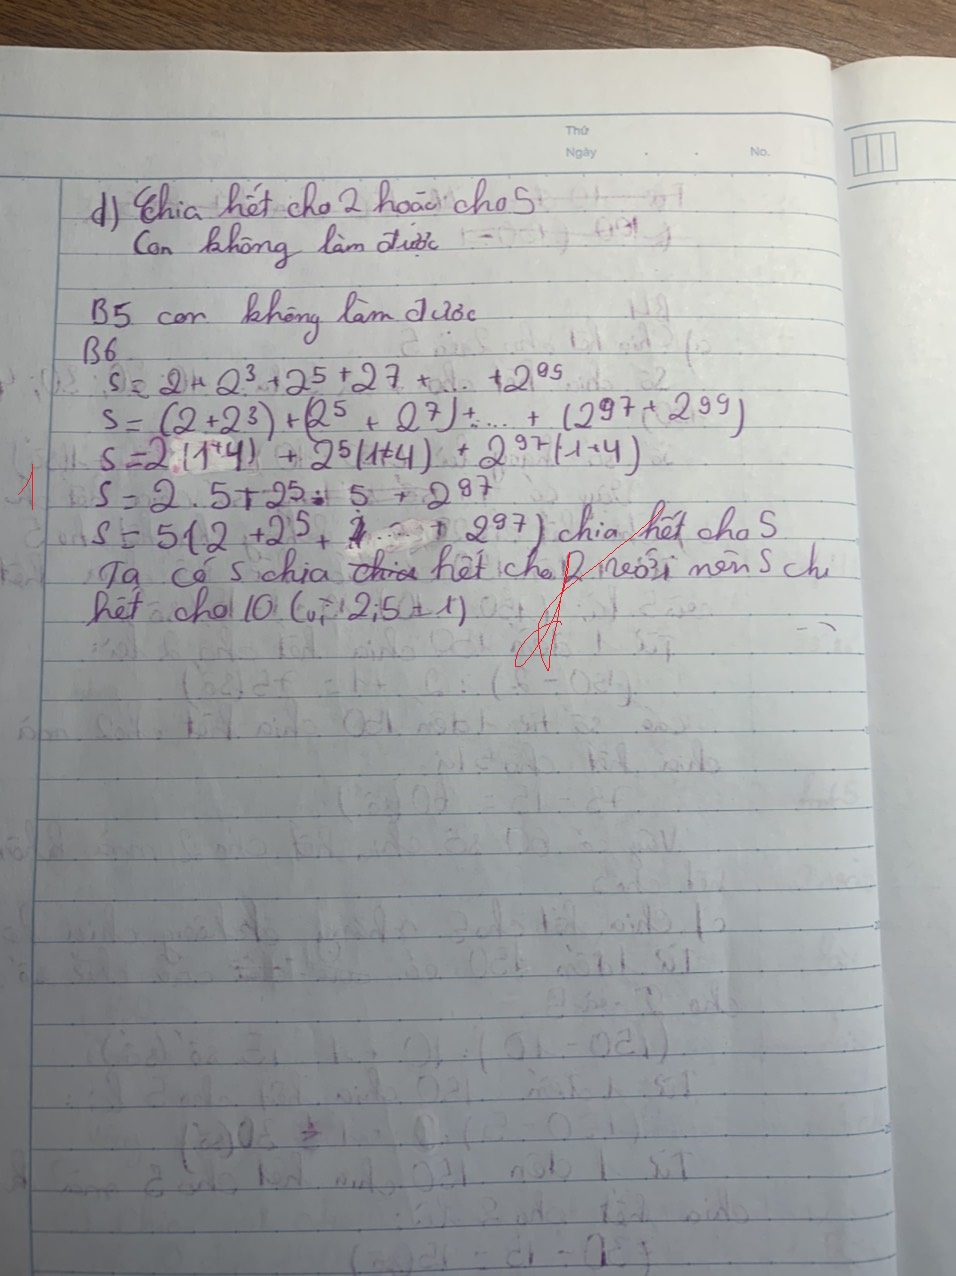 Thứ
Ngày . . No.
d) Chia hết cho 2 hoặc cho 5
Con không làm được
B5 con không làm được
B6
S = 2 + 2³ + 2⁵ + 2⁷ + ... + 2⁹⁵
S = (2 + 2³) + (2⁵ + 2⁷) + ... + (2⁹⁷ + 2⁹⁹)
S = 2 (1+4) + 2⁵ (1+4) + 2⁹⁷ (1+4)
1
S = 2 . 5 + 2⁵ . 5 + 2⁸⁷
S = 5 (2 + 2⁵ + ... + 2⁹⁷) chia hết cho 5
Ta có S chia chia hết cho 2 nên S chi
hết cho 10 (vì 2;5 = 1)